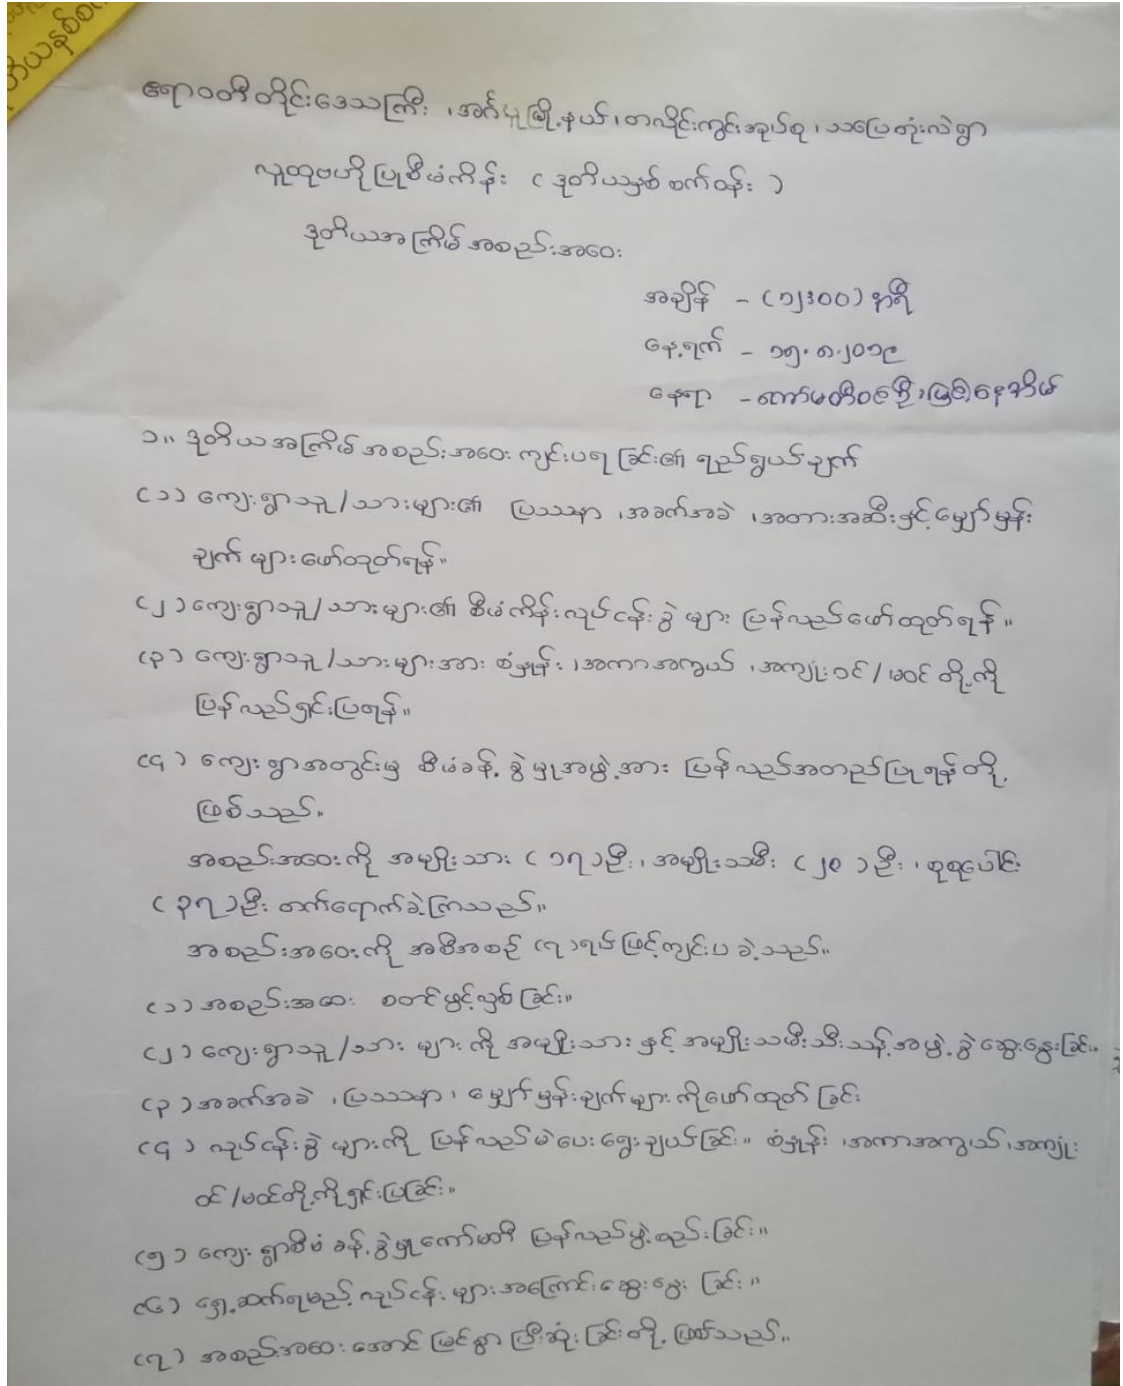 တိယနှစ်စက
ဧရာဝတီတိုင်းဒေသကြီး ၊အင်္ဂပူမြို့နယ်၊တလိုင်းကွင်းအုပ်စု ၊သပြေတုံးလဲရွာ
လူထုဗဟိုပြုစီမံကိန်း ( ဒုတိယနှစ် စက်ဝန်း )
ဒုတိယအကြိမ်အစည်းအဝေး
အချိန် - (၁၂း၀၀) နာရီ
နေ့ရက် - ၁၅.၈.၂၀၁၉
နေရာ - ကော်မတီဝင်ဦးမြင့်နေအိမ်
၁။ ဒုတိယအကြိမ်အစည်းအဝေး ကျင်းပရခြင်း၏ ရည်ရွယ်ချက်
(၁) ကျေးရွာသူ/သားများ၏ ပြဿနာ ၊အခက်အခဲ ၊အတားအဆီးနှင့်မျှော်မှန်း
ချက် များဖော်ထုတ်ရန်။
(၂) ကျေးရွာသူ/သားများ၏ စီမံကိန်းလုပ်ငန်းခွဲ များ ပြန်လည်ဖော်ထုတ်ရန်။
(၃) ကျေးရွာသူ/သားများအား စံနှုန်း ၊အကာအကွယ် ၊အကျုံးဝင်/မဝင် တို့ကို
ပြန်လည်ရှင်းပြရန်။
(၄) ကျေးရွာအတွင်းမှ စီမံခန့်ခွဲမှုအဖွဲ့အား ပြန်လည်အတည်ပြုရန်တို့
ဖြစ်သည်။
အစည်းအဝေးကို အမျိုးသား (၁၇)ဦး၊ အမျိုးသမီး (၂၀)ဦး ၊စုစုပေါင်း
(၃၇)ဦး တက်ရောက်ခဲ့ကြသည်။
အစည်းအဝေးကို အစီအစဉ် (၇)ရပ်ဖြင့်ကျင်းပခဲ့သည်။
(၁) အစည်းအဝေး စတင်ဖွင့်လှစ်ခြင်း။
(၂) ကျေးရွာသူ/သား များကို အမျိုးသား နှင့် အမျိုးသမီးသီးသန့်အဖွဲ့ခွဲဆွေးနွေးခြင်း။
(၃) အခက်အခဲ ၊ပြဿနာ၊ မျှော်မှန်းချက်များကိုဖော်ထုတ်ခြင်း
(၄) လုပ်ငန်းခွဲများကို ပြန်လည်မဲပေးရွေးချယ်ခြင်း။ စံနှုန်း ၊အကာအကွယ်၊အကျုံး
ဝင်/မဝင်တို့ကိုရှင်းပြခြင်း။
(၅) ကျေးရွာစီမံခန့်ခွဲမှုကော်မတီ ပြန်လည်ဖွဲ့စည်းခြင်း။
(၆) ရှေ့ဆက်ရမည့်လုပ်ငန်းများအကြောင်းဆွေးနွေးခြင်း။
(၇) အစည်းအဝေးအောင်မြင်စွာပြီးဆုံးခြင်းတို့ ဖြစ်သည်။